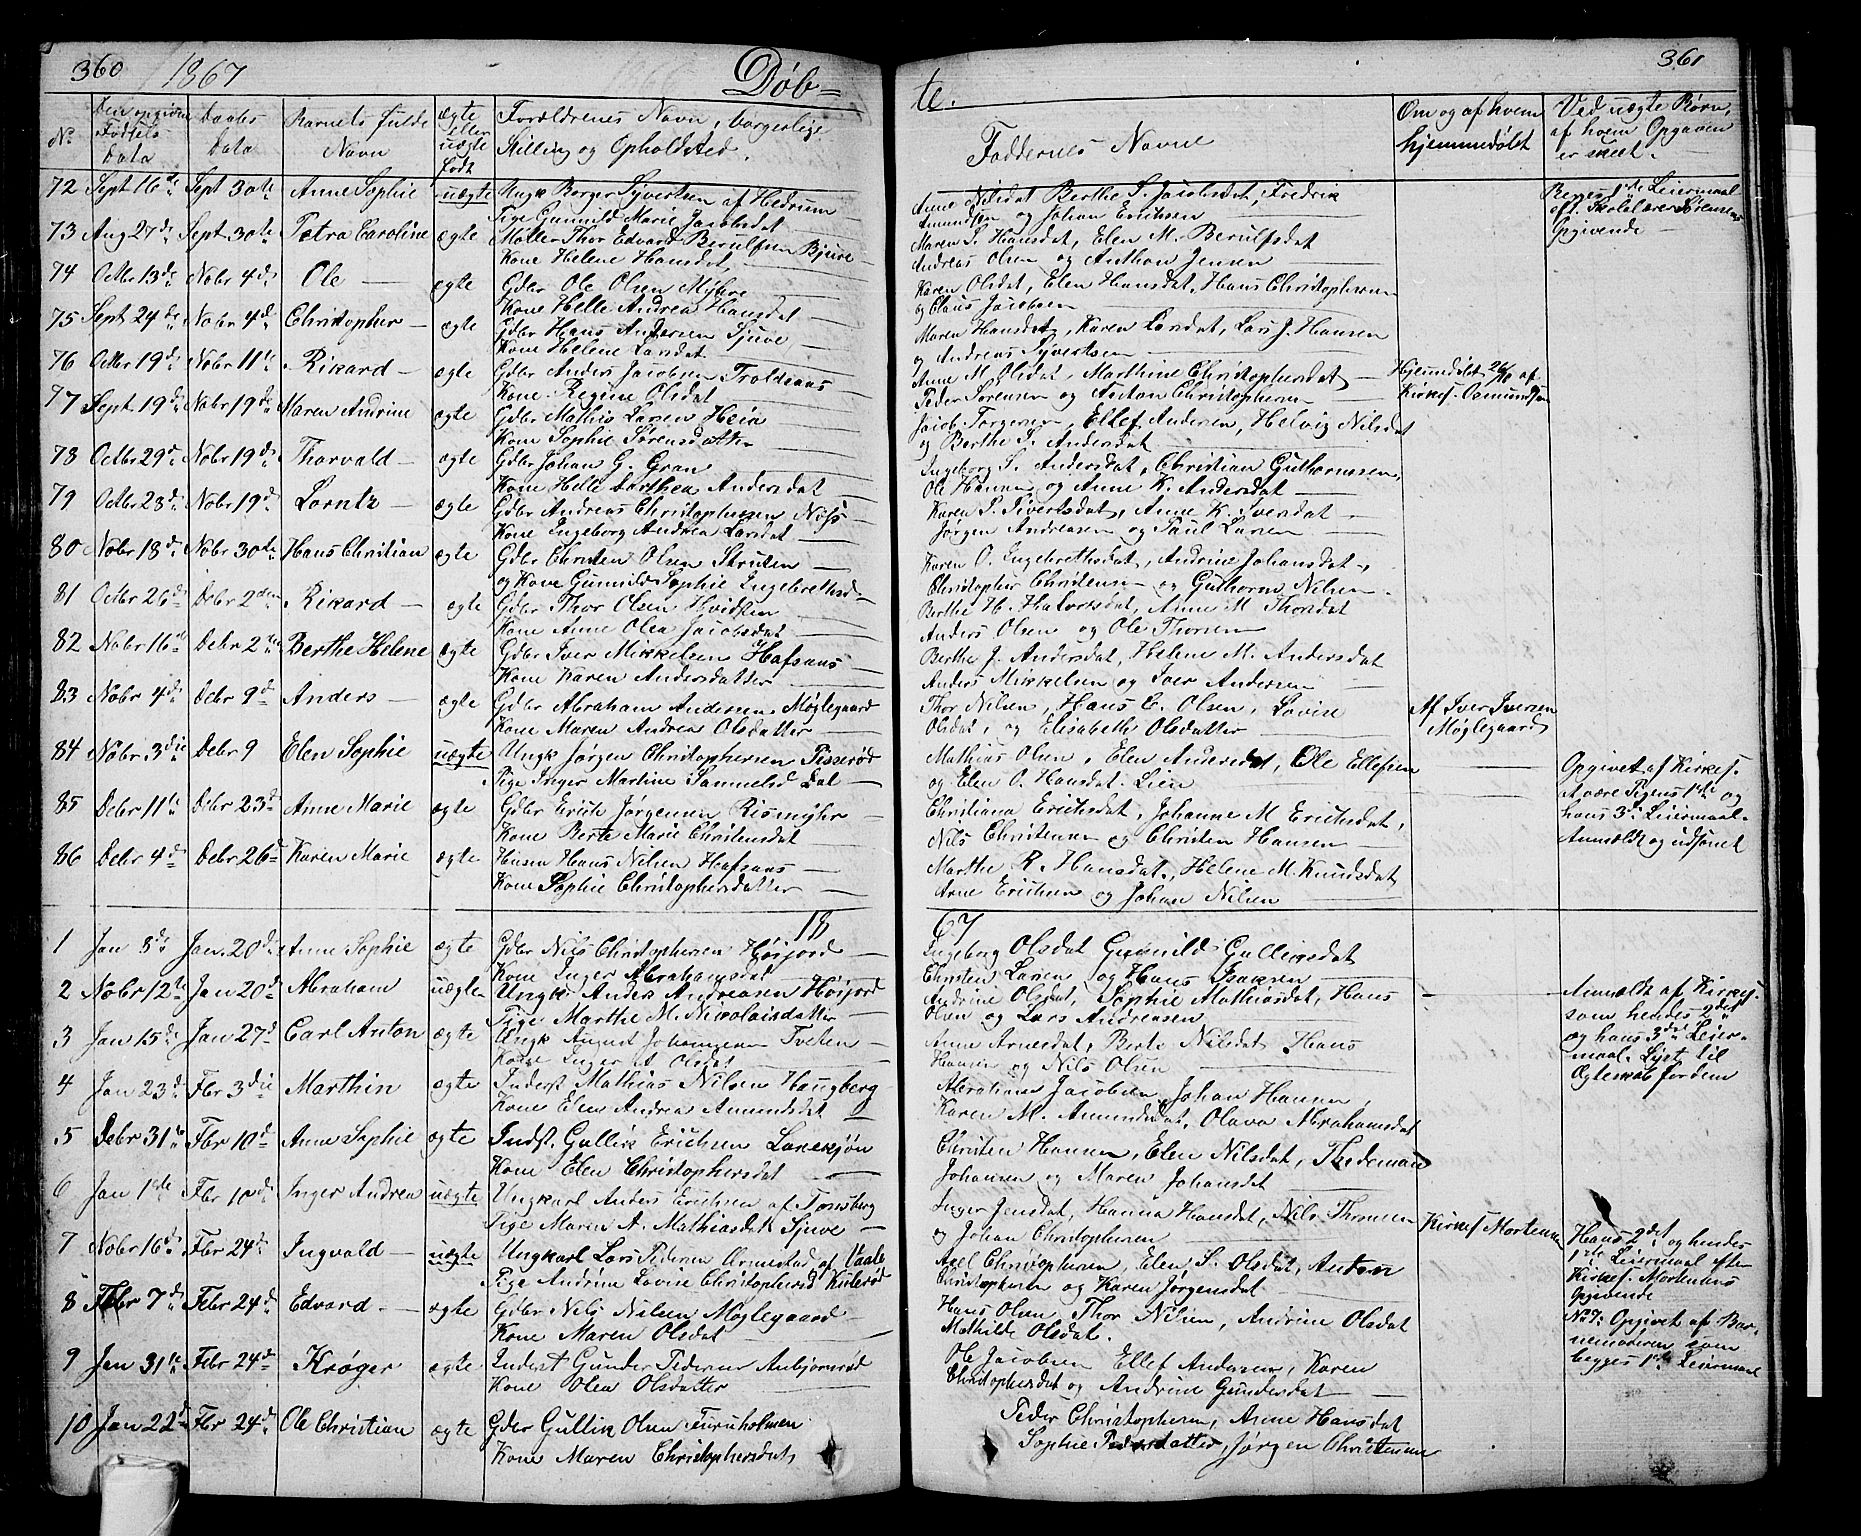 360 1867 Døb=
No Den opgivne Fødsels Data Daabs Data Barnets fulde Navn ægte eller uægte født Forældrenes Navn, borgerlige Stilling og Opholdsted.
72 Sept 16de Sept 30te Anne Sophie uægte Ungk Borger Syvertsen af Hedrum
Pige Gunnild Marie Jacobsdat
73 Aug 27de Sept 30te Petra Caroline ægte Møller Thor Edvard Berulfsen Bjuve
Kone Helene Hansdat
74 Octbr 13de Nobr 4de Ole ægte Gdbr Ole Olsen Myhre
Kone Helle Andrea Hansdat
75 Sept 24de Nobr 4de Christopher ægte Gdbr Hans Andersen Sjuve
Kone Helene Larsdat
76 Octbr 19de Nobr 11te Rikard ægte Gdbr Anders Jacobsen Troldsaas
Kone Regine Olsdat
77 Sept 19de Nobr 19de Maren Andrine ægte Gdbr Mathis Larsen Heia
Kone Sophie Sørensdatter
78 Octbr 29de Nobr 19de Thorvald ægte Gdbr Johan G. Gran
Kone Helle Dorthea Andersdat
79 Octbr 23de Nobr 19de Lorntz ægte Gdbr Andreas Christophersen Nøss
Kone Ingeborg Andrea Larsdat
80 Nobr 18de Nobr 30te Hans Christian ægte Gdbr Christen Olsen Struten
og Kone Gunnild Sophie Ingebrethsd
81 Octbr 26de Debr 2den Rikard ægte Gdbr Thor Olsen Hvidsten
Kone Anne Olea Jacobsdat
82 Nobr 16de Debr 2den Berthe Helene ægte Gdbr Iver Mikkelsen Hafsaas
Kone Karen Andersdatter
83 Nobr 4de Debr 9de Anders ægte Gdbr Abraham Andersen Møglegaard
Kone Maren Andrea Olsdatter
84 Nobr 3die Debr 9 Elen Sophie uægte Ungk Jørgen Christophersen Pisserød
Pige Inger Martine Samuelsd Dal
85 Debr 11te Debr 23de Anne Marie ægte Gdbr Erich Jørgensen Rismyhr
Kone Berte Marie Christensdat
86 Debr 4de Debr 26de Karen Marie ægte Husm Hans Nilsen Hafsaas
Kone Sophie Christophersdatter
18
1 Jan 8de Jan. 20de Anne Sophie ægte Gdbr Nils Christophersen Høijord
Kone Inger Abrahamsdat
2 Nobr 12te Jan 20de Abraham uægte Ungk Anders Andreasen Høijord
Pige Marthe M. Nicolaisdatter
3 Jan 15de Jan 27de Carl Anton ægte Ungk August Johannesen Tveten
Kone Inger A. Olsdat
4 Jan 23de Fbr 3die Marthin ægte Inderst Mathias Nilsen Haugberg
Kone Elen Andrea Amundsdat
5 Debr 31te Fbr 10de Anne Sophie ægte Indst. Gullik Erichsen Lakesjøn
Kone Elen Christophersdat
6 Jan 1ste Fbr 10de Inger Andrea uægte Ungkarl Anders Erichsen af Tønsberg
Pige Maren A. Mathiasdat Sjuve
7 Nobr 16de Fbr 24de Ingvald uægte Ungkarl Lars Pedersen Ormestad af Vaale
Pige Andrine Lovise Christophersd Kislerød
8 Febr 7de Febr 24de Edvard ægte Gdbr Nils Nilsen Møglegaard
Kone Maren Olsdat
9 Jan 31te Febr 24de Krøger ægte Inderst Gunder Pedersen Anbjørnrød
Kone Olea Olsdatter
10 Jan 22de Fbr 24de Ole Christian ægte Gdbr Gullik Olsen Furuholmen
Kone Maren Christophersdat
te. 361
Faddernes Navne Om og af hvem hjemmedøbt Ved uægte Børn, af hvem Opgaven er skeet.
Anne Nilsdat Berthe S. Jacobsdat, Fredrik
Amundsen og Johan Erichsen
Begges 1ste Leiermaal
eft. Skolelærer Sørensens
Opgivende
Maren S. Hansdat, Elen M. Berulfsdat
Andreas Olsen og Anthon Jensen
Karen Olsdat, Elen Hansdat, Hans Christophersen
og Claus Jacobsen
Maren Hansdat, Karen Larsdat, Lars J. Hansen
og Andreas Syvertsen
Anne M. Olsdat, Marthine Christophersdat
Peder Sørensen og Anton Christophersen
Hjemmedøbt 26/10 af
Kirkes. Osmundsen
Jacob Torgersen, Ellef Andersen, Helvig Nilsdat
og Berthe S. Andersdat
Ingeborg S. Andersdat, Christian Guthormsen,
Ole Hansen og Anne K. Andersdat
Karen P. Sivertsdat, Anne K. Iversdat
Jørgen Andreasen og Paul Larsen
Karen O. Ingebrethsdat, Andrine Johansdat,
Christopher Christensen og Guthorm Nilsen
Berthe H. Halvorsdat, Anne M. Thorsdat
Anders Olsen og Ole Thorsen
Berthe J. Andersdat, Helene M. Andersdat
Anders Mikkelsen og Iver Andersen
Thor Nilsen, Hans C. Olsen, Lovise
Olsdat, og Elisabeth Olsdatter
Af Iver Iversen
Møglegaard
Mathias Olsen, Elen Andersdat, Ole Ellefsen
og Elen O. Hansdat. Lien
Opgivet af Kirkes.
at være Pigens 1ste og
hans 3de Leiermaal.
Anmeldt og udsonet
Christiana Erichsdat, Johanne M Erichsdat,
Nils Christensen og Christen Hansen
Marthe R. Hansdat, Helene M. Knudsdat
Arne Erichsen og Johan Nilsen
67
Ingeborg Olsdat Gunnild Gullichsdat
Christen Larsen og Hans Isaksen
Andrine Olsdat, Sophie Mathiasdat, Hans
Olsen og Lars Andreasen
Anmeldt af Kirkes.
som hendes 2det
og hans 3die Leier-
maal. Lyst til
Ægteskab fordem
Anne Arnesdat, Berte Nilsdat Hans
Hansen og Nils Olsen
Abraham Jacobsen, Johan Hansen,
Karen M. Amundsdat, Olava Abrahamsdat
Christen Hansen, Elen Nilsdat, Thideman
Johansen og Maren Johansdat
Inger Jensdat, Hanna Hansdat, Nils Thorsen
og Johan Christophersen
Kirkes Mortensen
Hans 2det og hendes
1ste Leiermaal efter
Kirkes. Mortensens
Opgivende
Axel Christophersen, Elen S. Olsdat, Anton
Christophersen og Karen Jørgensdat
Hans Olsen Thor Nilsen, Andrine Olsdat
Mathilde Olsdat.
No 7: Opgivet af Bar-
nemoderen som
begges 1ste Leiermaal
Ole Jacobsen Ellef Andersen, Karen
Christophersdat og Andrine Gundersdat
Peder Christophersen, Anne Hansdat
Sophie Pedersdatter, Jørgen Christensen